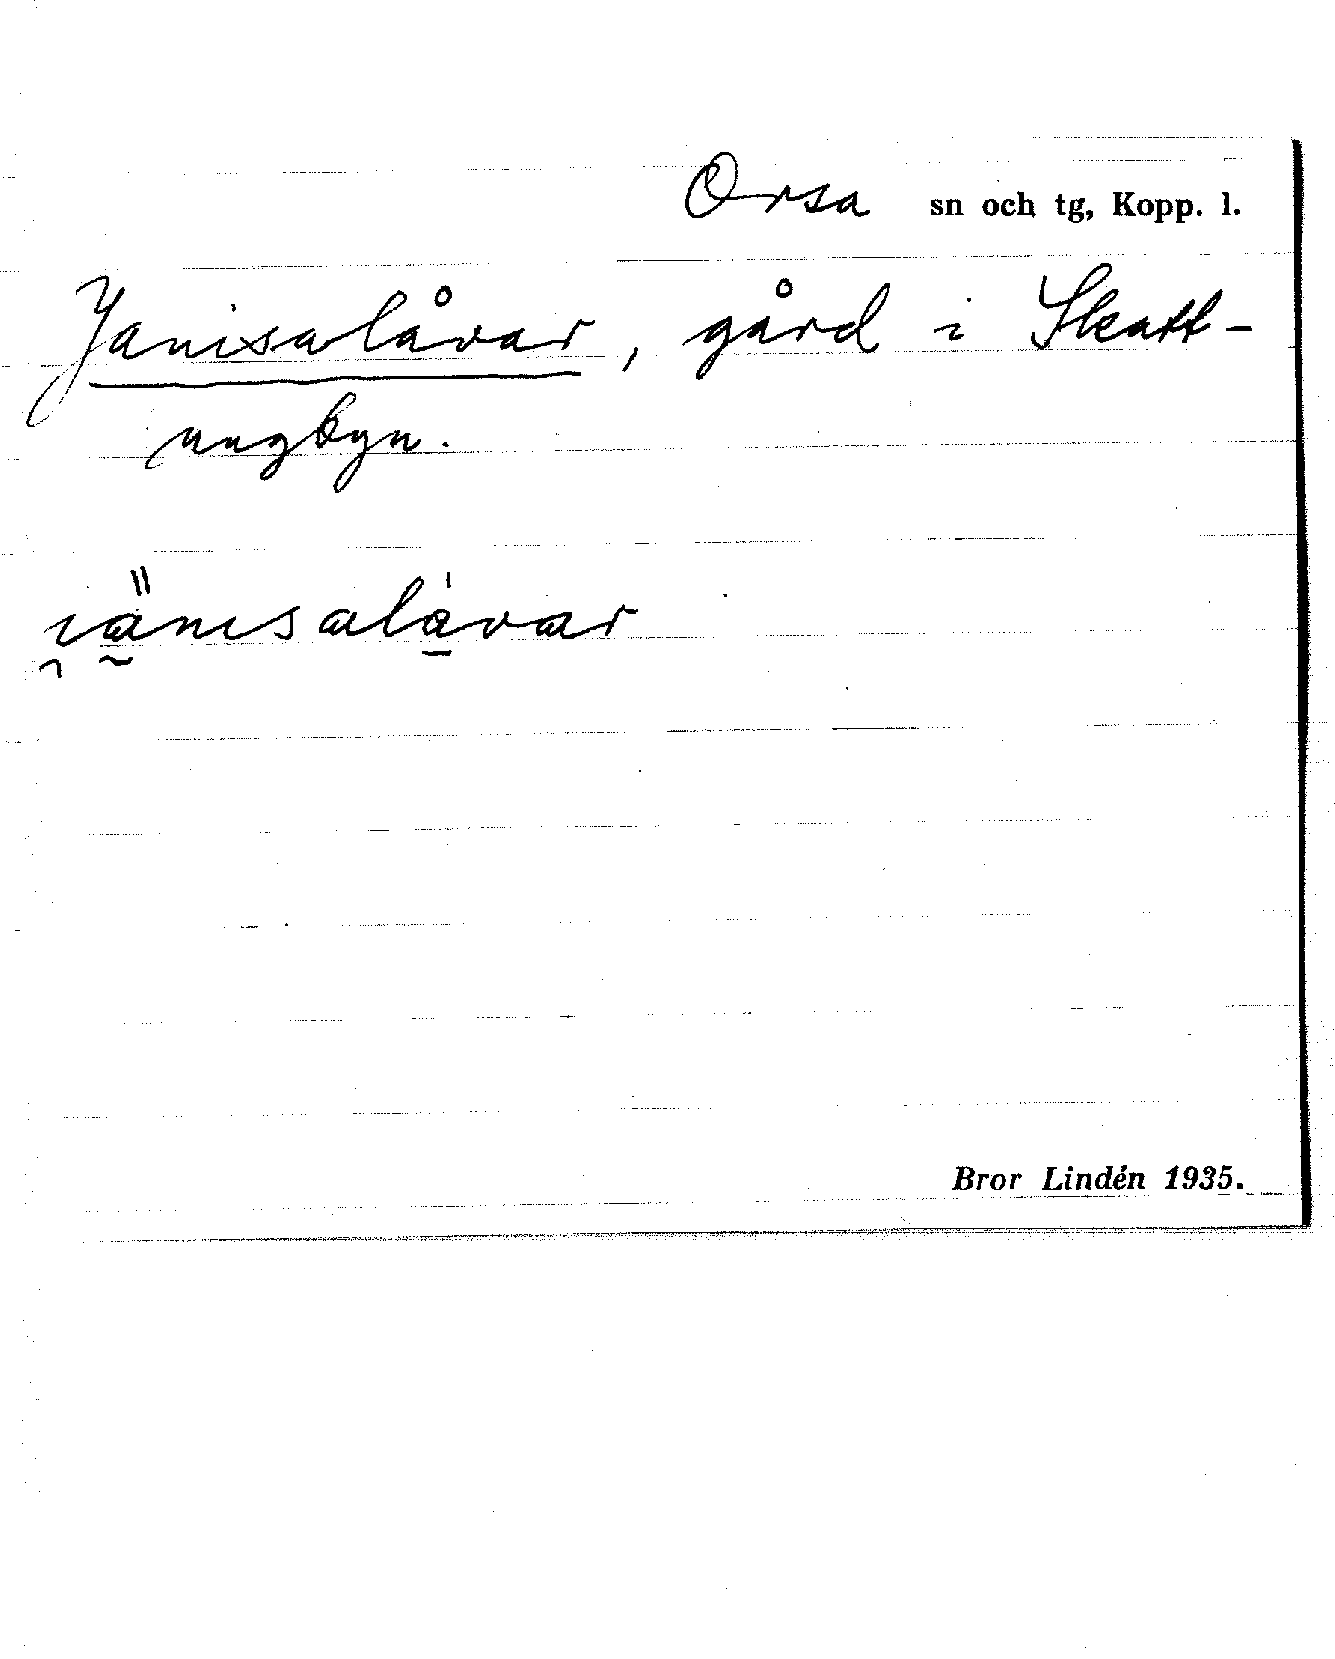 Orsa sn och tg, Kopp. l.
Janisalåvar, gård i Skatt-
ungbyn.
i̯ä̰nɩsalàvar
Bror Lindén 1935.